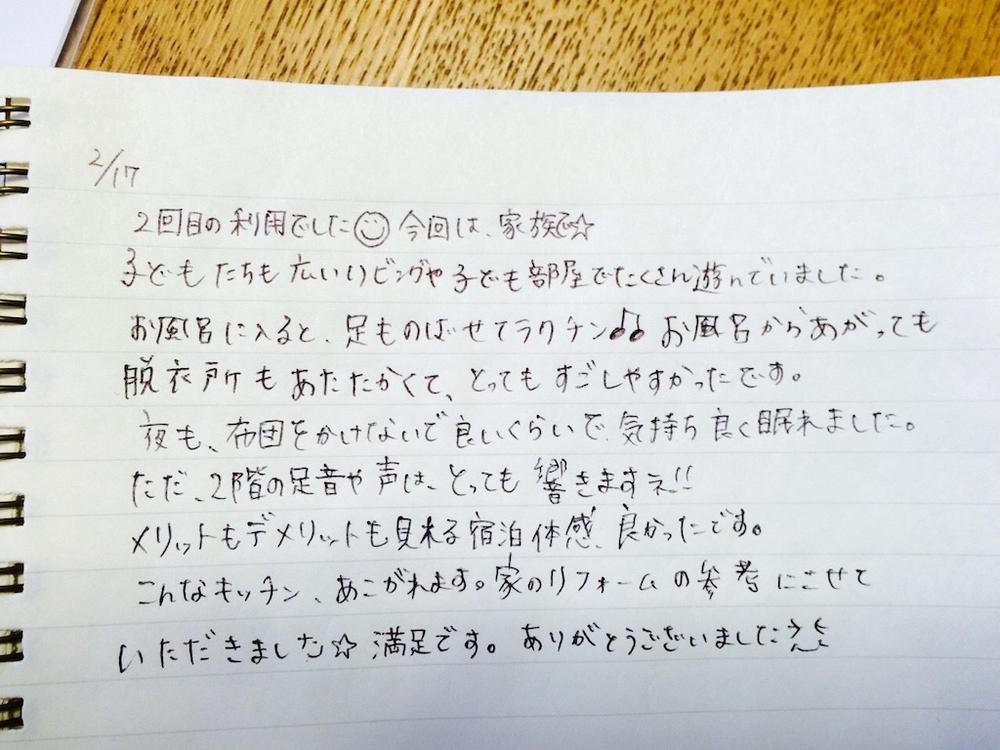 2/17
2回目の利用でした☺今回は、家族で☆
子どもたちも広いリビングや子ども部屋でたくさん遊んでいました。
お風呂に入ると、足ものばせてラクチン♪♪お風呂からあがっても
脱衣所もあたたかくて、とってもすごしやすかったです。
夜も、布団をかけないで良いくらいで、気持ち良く眠れました。
ただ、2階の足音や声は、とっても響きますネ!!
メリットもデメリットも見れる宿泊体感、良かったです。
こんなキッチン、あこがれます。家のリフォームの参考にさせて
いただきました☆満足です。ありがとうございました